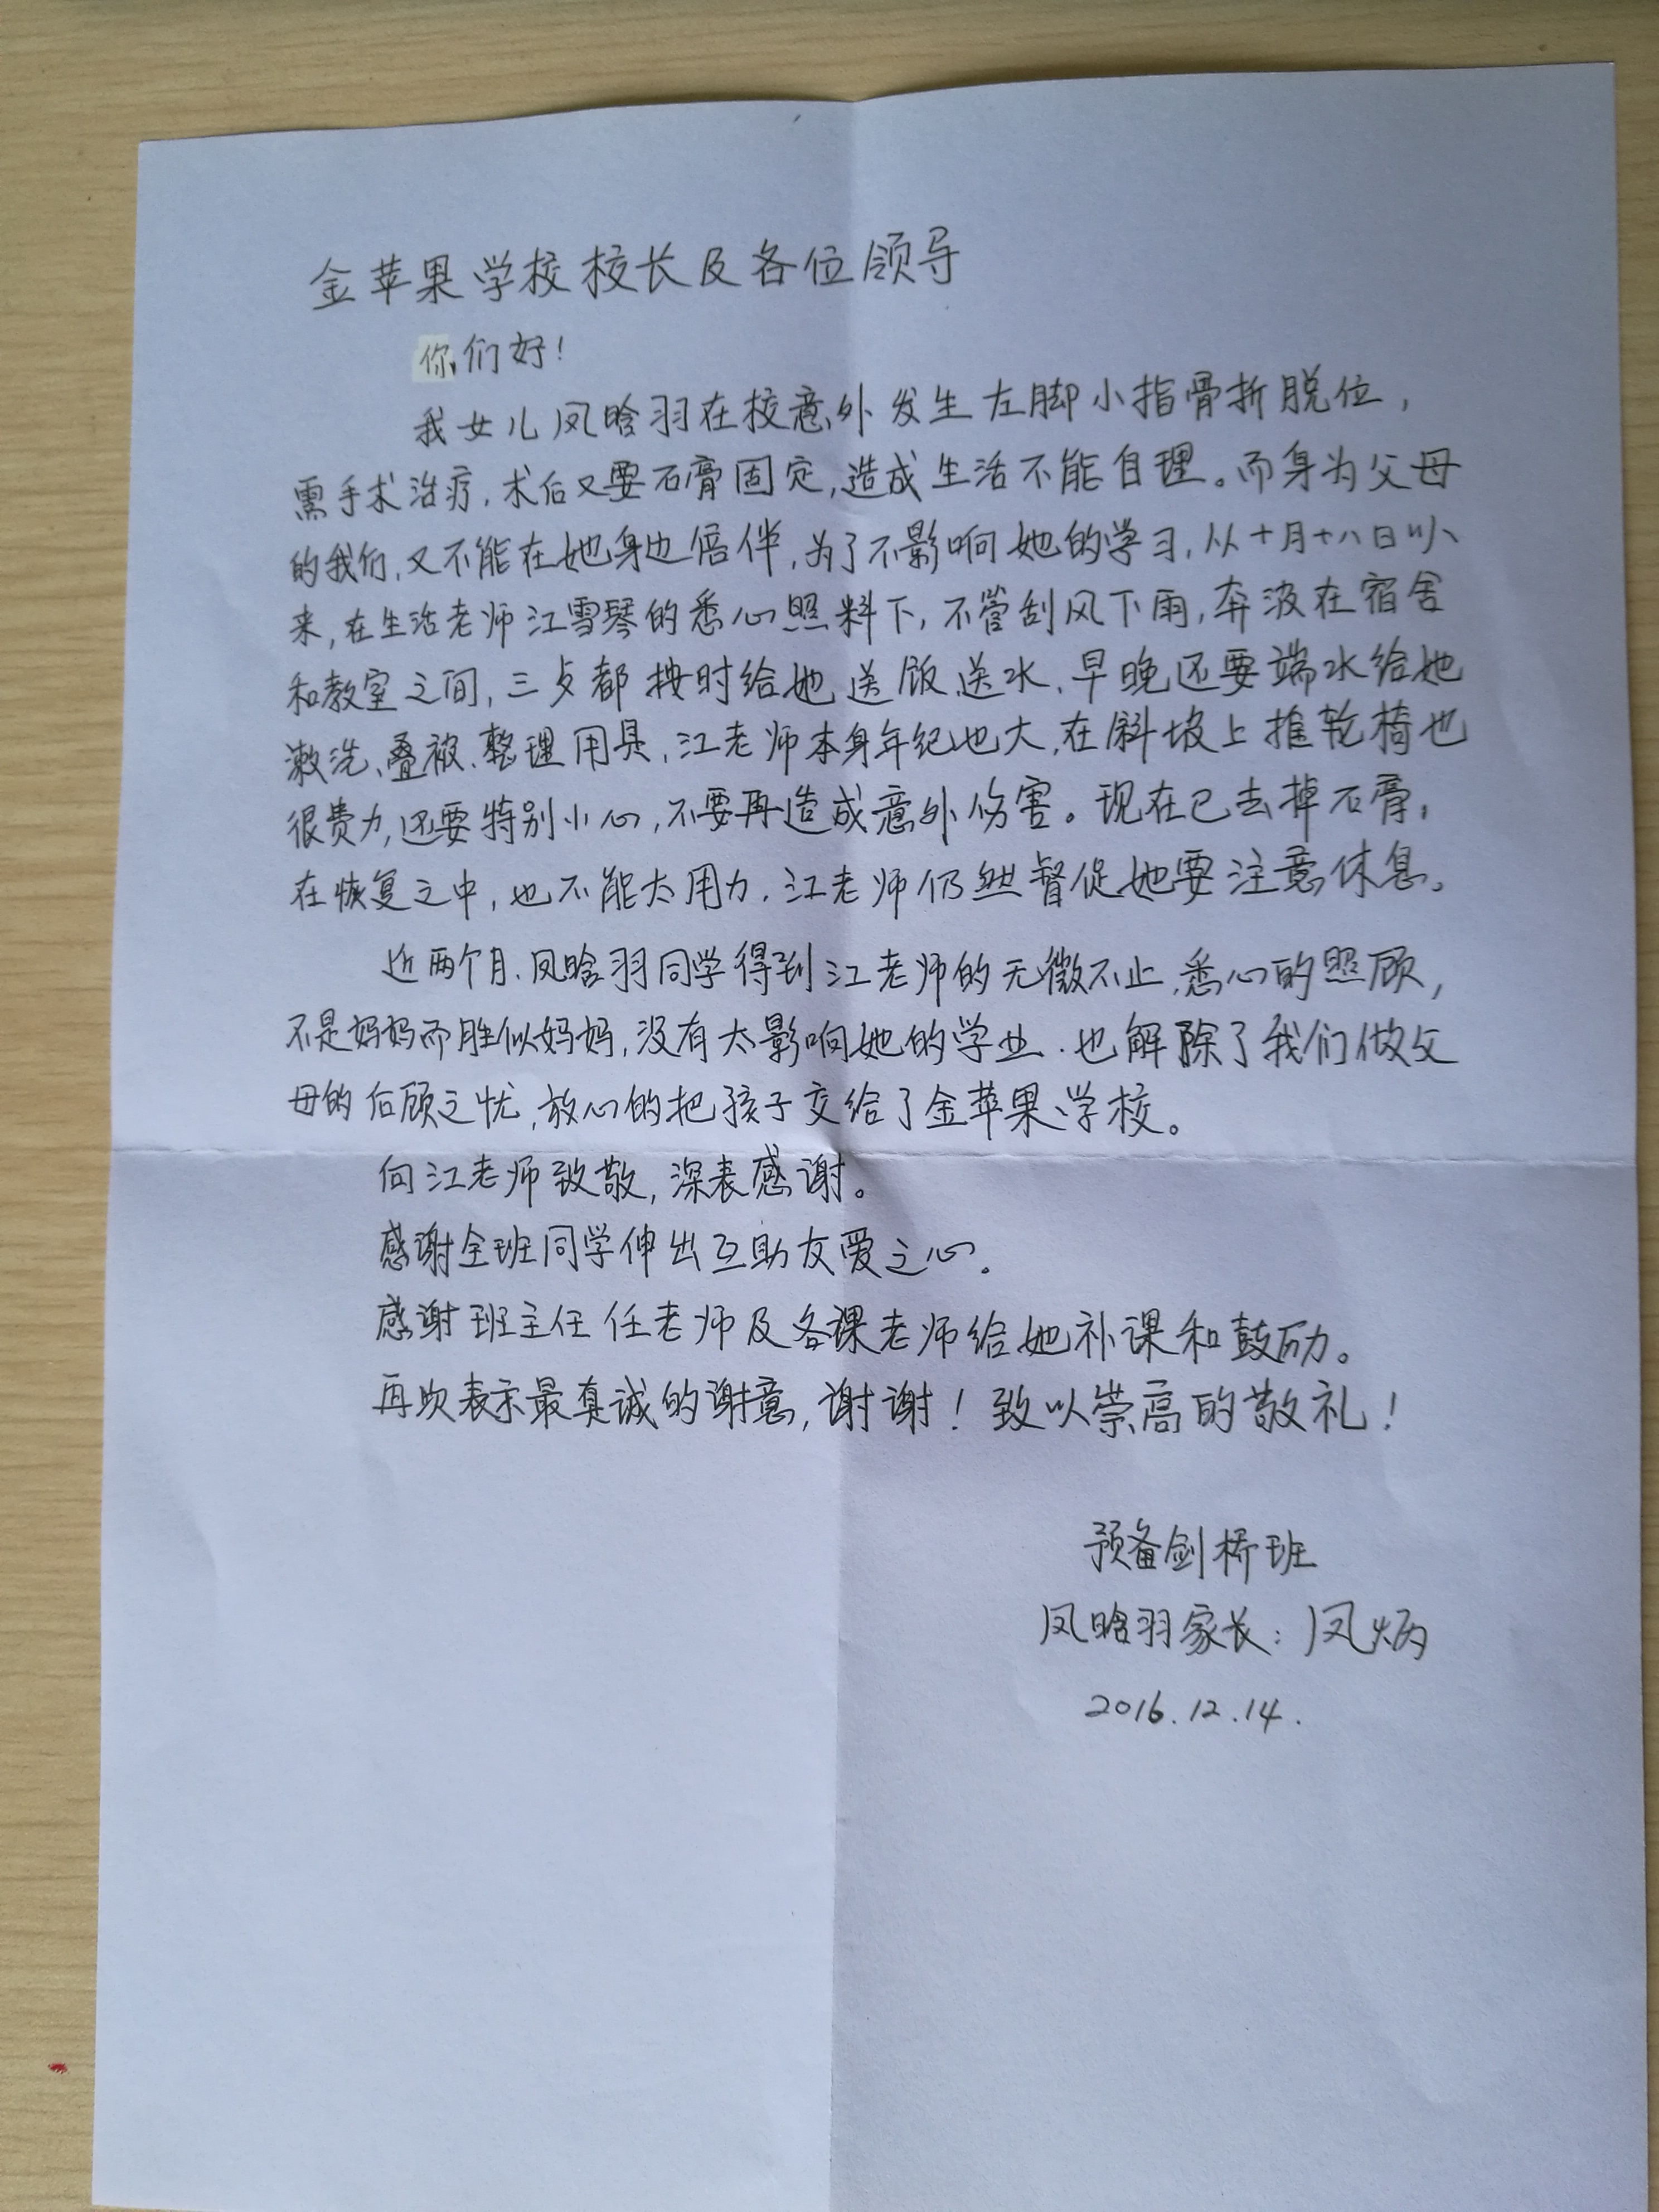 金苹果学校校长及各位领导
你们好！
我女儿凤晗羽在校意外发生左脚小指骨折脱位，
需手术治疗，术后又要石膏固定，造成生活不能自理。而身为父母
的我们，又不能在她身边倍伴，为了不影响她的学习，从十月十八日以
来，在生活老师江雪琴的悉心照料下，不管刮风下雨，奔波在宿舍
和教室之间，三歺都按时给她送饭送水、早晚还要端水给她
漱洗、叠被、整理用具，江老师本身年纪也大，在斜坡上推轮椅也
很费力，还要特别小心，不要再造成意外伤害。现在已去掉石膏，
在恢复之中，也不能太用力，江老师仍然督促她要注意休息。
近两个月，凤晗羽同学得到江老师的无微不止，悉心的照顾，
不是妈妈而胜似妈妈，没有太影响她的学业，也解除了我们做父
母的后顾之忧，放心的把孩子交给了金苹果学校。
向江老师致敬，深表感谢。
感谢全班同学伸出互助友爱之心。
感谢班主任任老师及各课老师给她补课和鼓励。
再次表示最真诚的谢意，谢谢！致以崇高的敬礼！
预备剑桥班
凤晗羽家长：凤炳
2016.12.14.